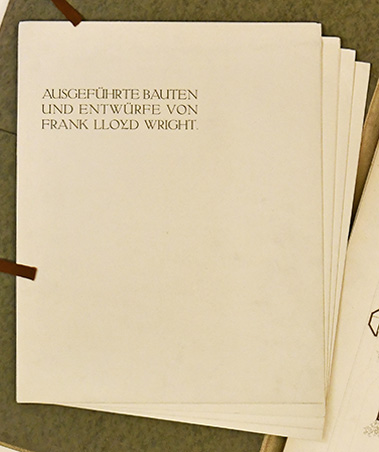 AUSGEFÜHRTE BAUTEN
UND ENTWÜRFE VON
FRANK LLOYD WRIGHT.